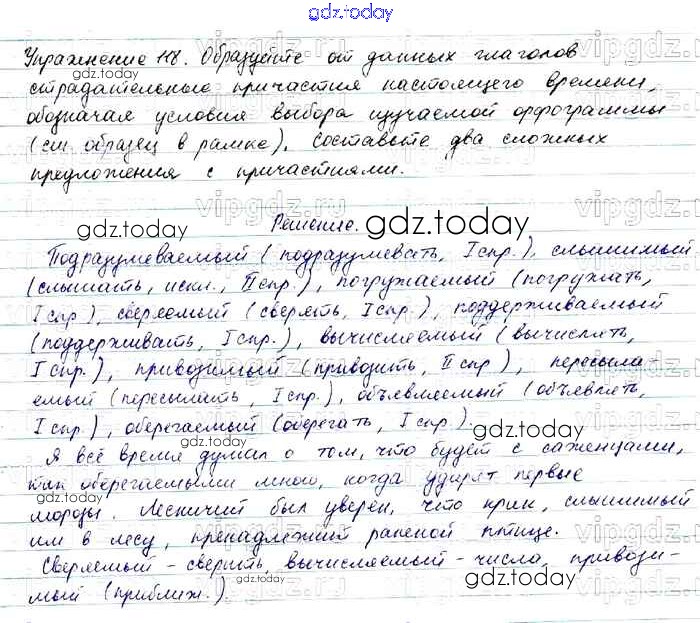 gdz.today
Упражнение 118. Образуйте от данных глаголов
страдательные причастия настоящего времени,
обозначая условия выбора изучаемой орфограммы
(см. образец в рамке). Составьте два сложных
предложения с причастиями.
Решение.
Подразумеваемый (подразумевать, I спр.), слышимый
(слышать, искл., II спр.), погружаемый (погружать,
I спр.), сверяемый (сверять, I спр.), поддерживаемый
(поддерживать, I спр.), вычисляемый (вычислять,
I спр.), приводимый (приводить, II спр.), пересыла-
емый (пересылать, I спр.), объявляемый (объявлять,
I спр.), оберегаемый (оберегать, I спр.).
Я всё время думал о том, что будет с саженцами,
так оберегаемыми мною, когда ударят первые
морозы. Лесничий был уверен, что крик, слышимый
им в лесу, принадлежит раненой птице.
Сверяемый - сверить, вычисляемый - числа, привози-
мый (приближ.).
gdz.today
gdz.today
gdz.today
gdz.today
gdz.today
gdz.today
gdz.today
gdz.today
vipgdz.ru